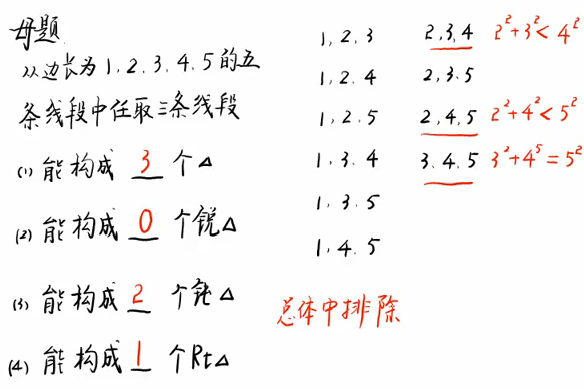 母题
从边长为1,2,3,4,5的五
条线段中任取三条线段
(1) 能构成 3 个△
(2) 能构成 0 个锐△
(3) 能构成 2 个钝△
(4) 能构成 1 个Rt△
1,2,3
1,2,4
1,2,5
1,3.4
1,3.5
1,4.5
2,3,4 2²+3²<4²
2,3.5
2,4,5 2²+4²<5²
3.4.5 3²+4⁵=5²
总体中排除